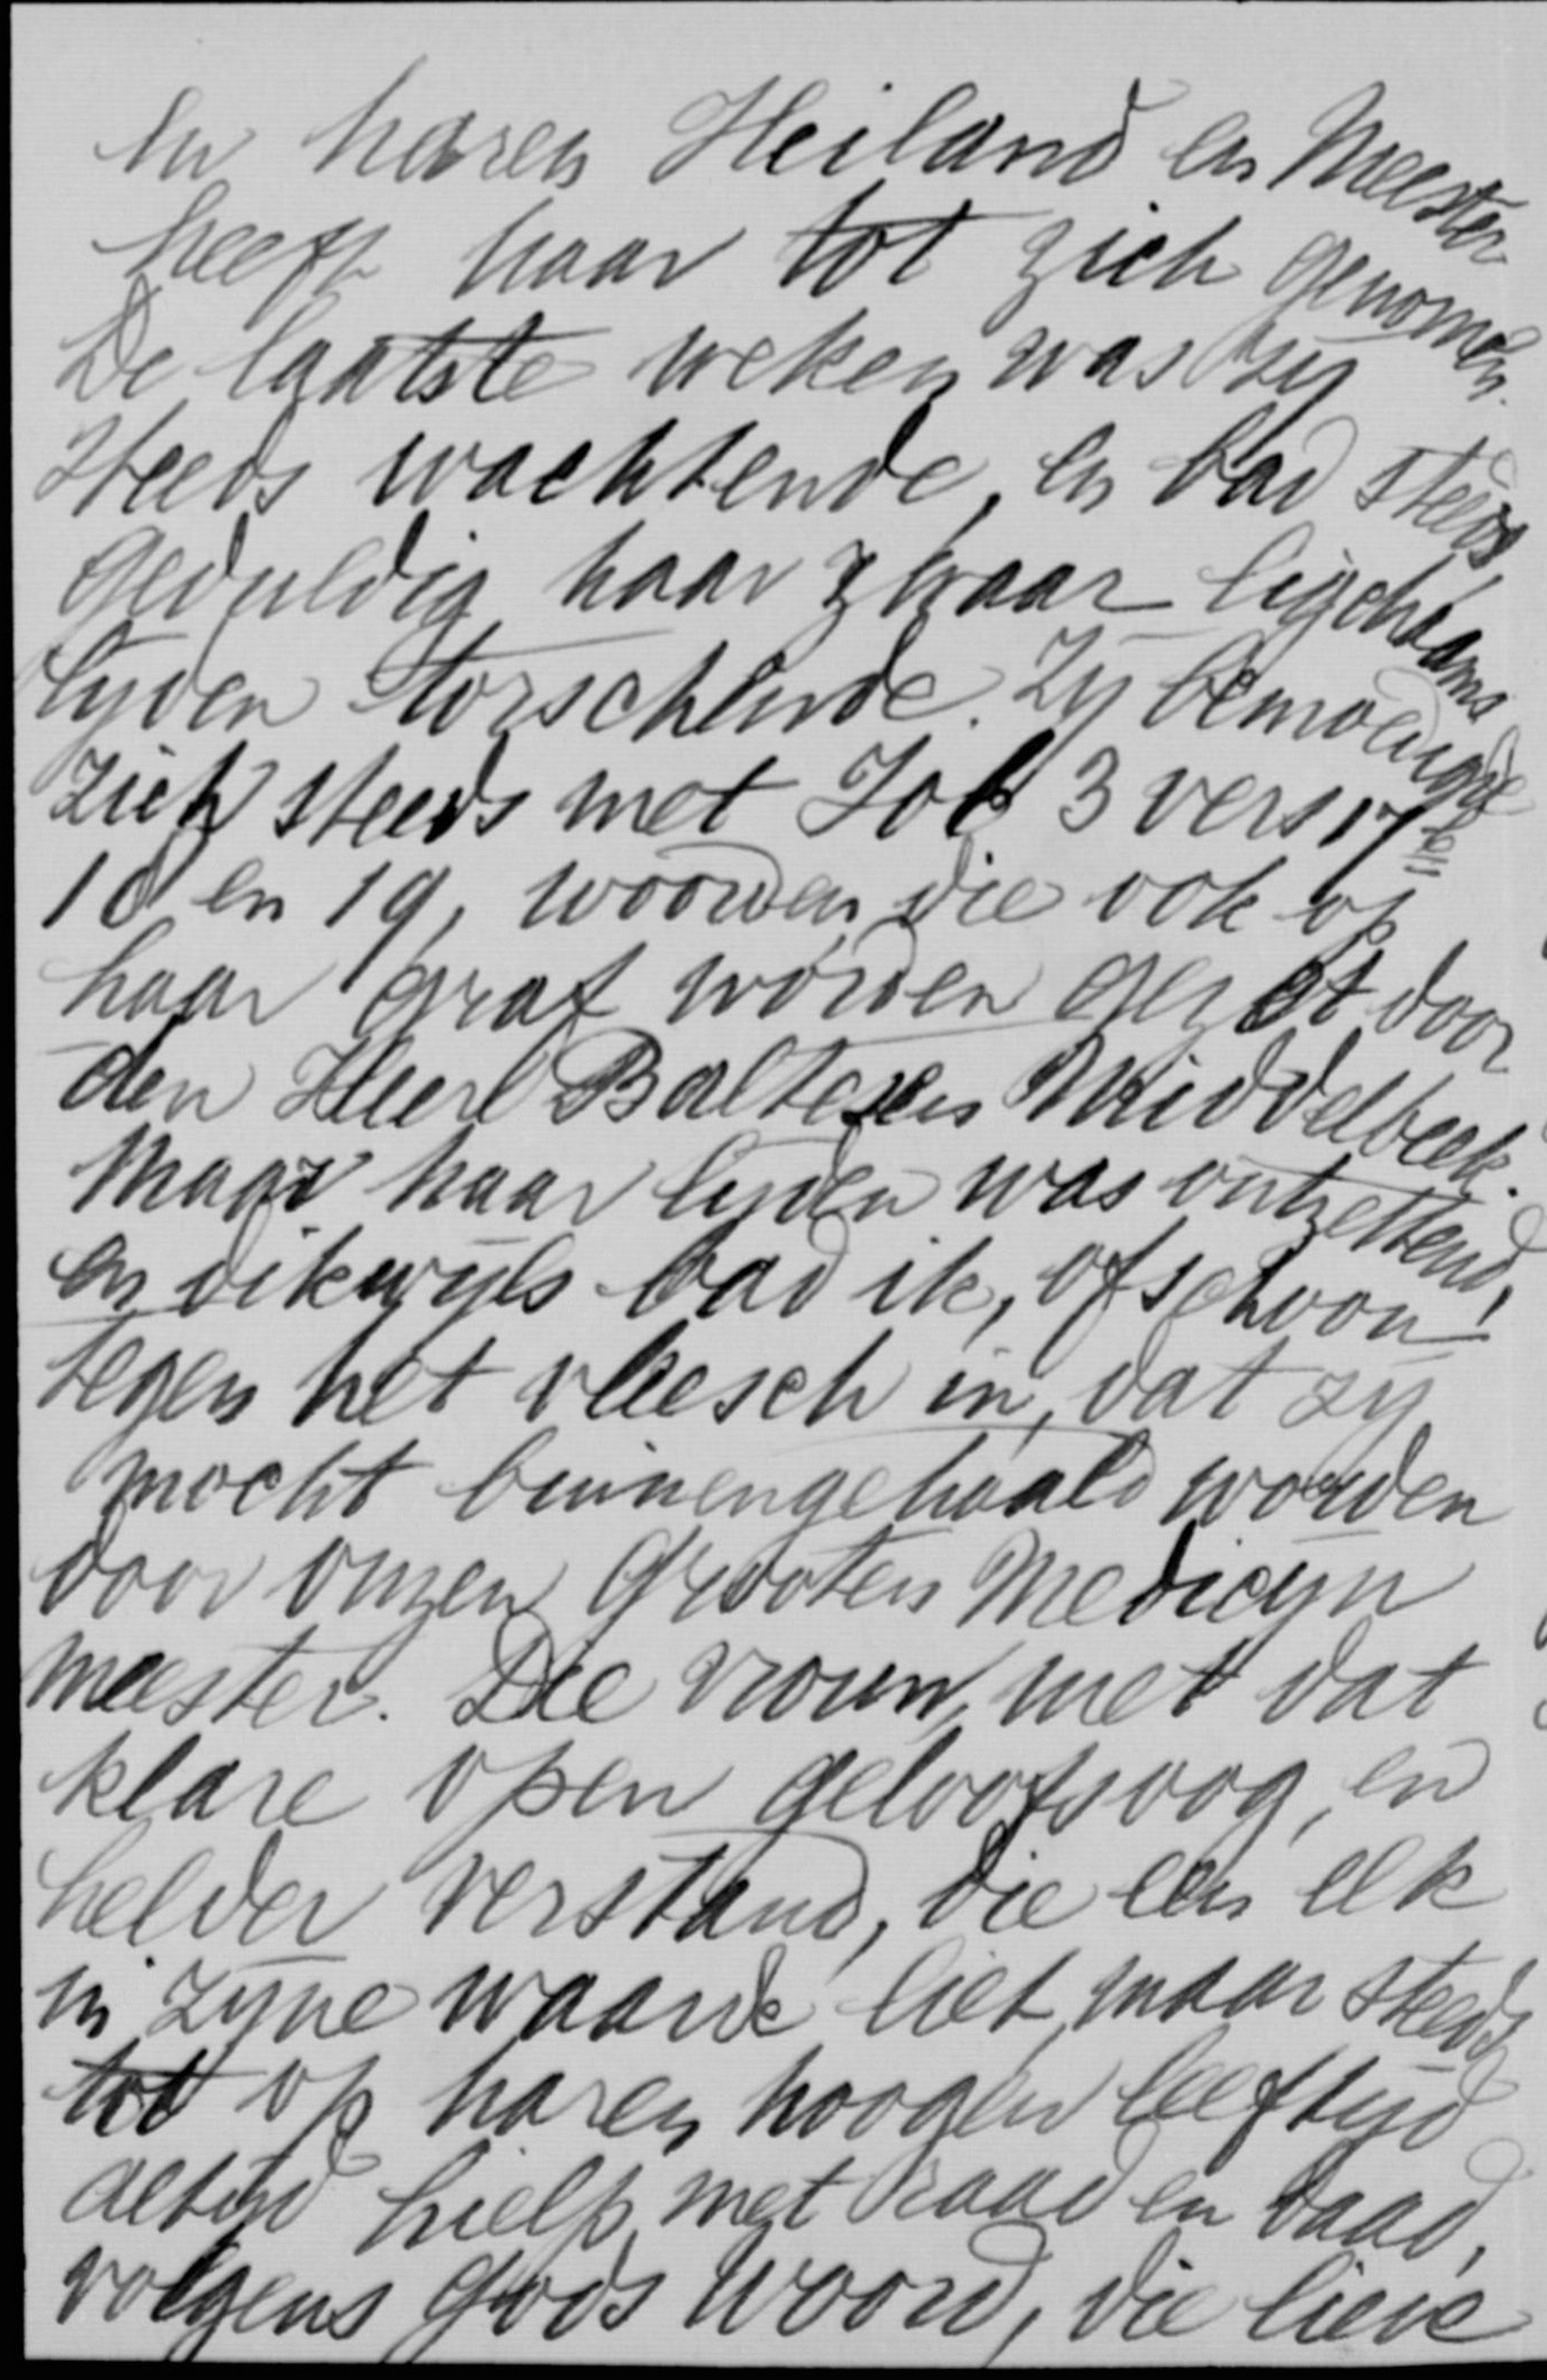 en haren Heiland en Meester
heeft haar tot zich genomen.
De laatste weken was zij
steeds wachtende, en bad steeds,
geduldig haar zwaar ligchaams
lijden torschende. Zij bemoedigde
zich steeds met Job 3 vers 17
18 en 19, woorden die ook op
haar graf worden gezet door
den Heer Baltesen Middelbeek.
Maar haar lijden was ontzettend,
en dikwijls bad ik, ofschoon
tegen het vleesch in, dat zij
mocht binnengehaald worden
door onzen Grooten Medicijn
meester. Die vrouw, met dat
klare open geloofsoog, en
helder verstand, die een elk
in zijne waarde liet, maar steeds
tot op haren hoogen leeftijd
altijd hielp, met raad en daad,
volgens Gods Woord, die lieve